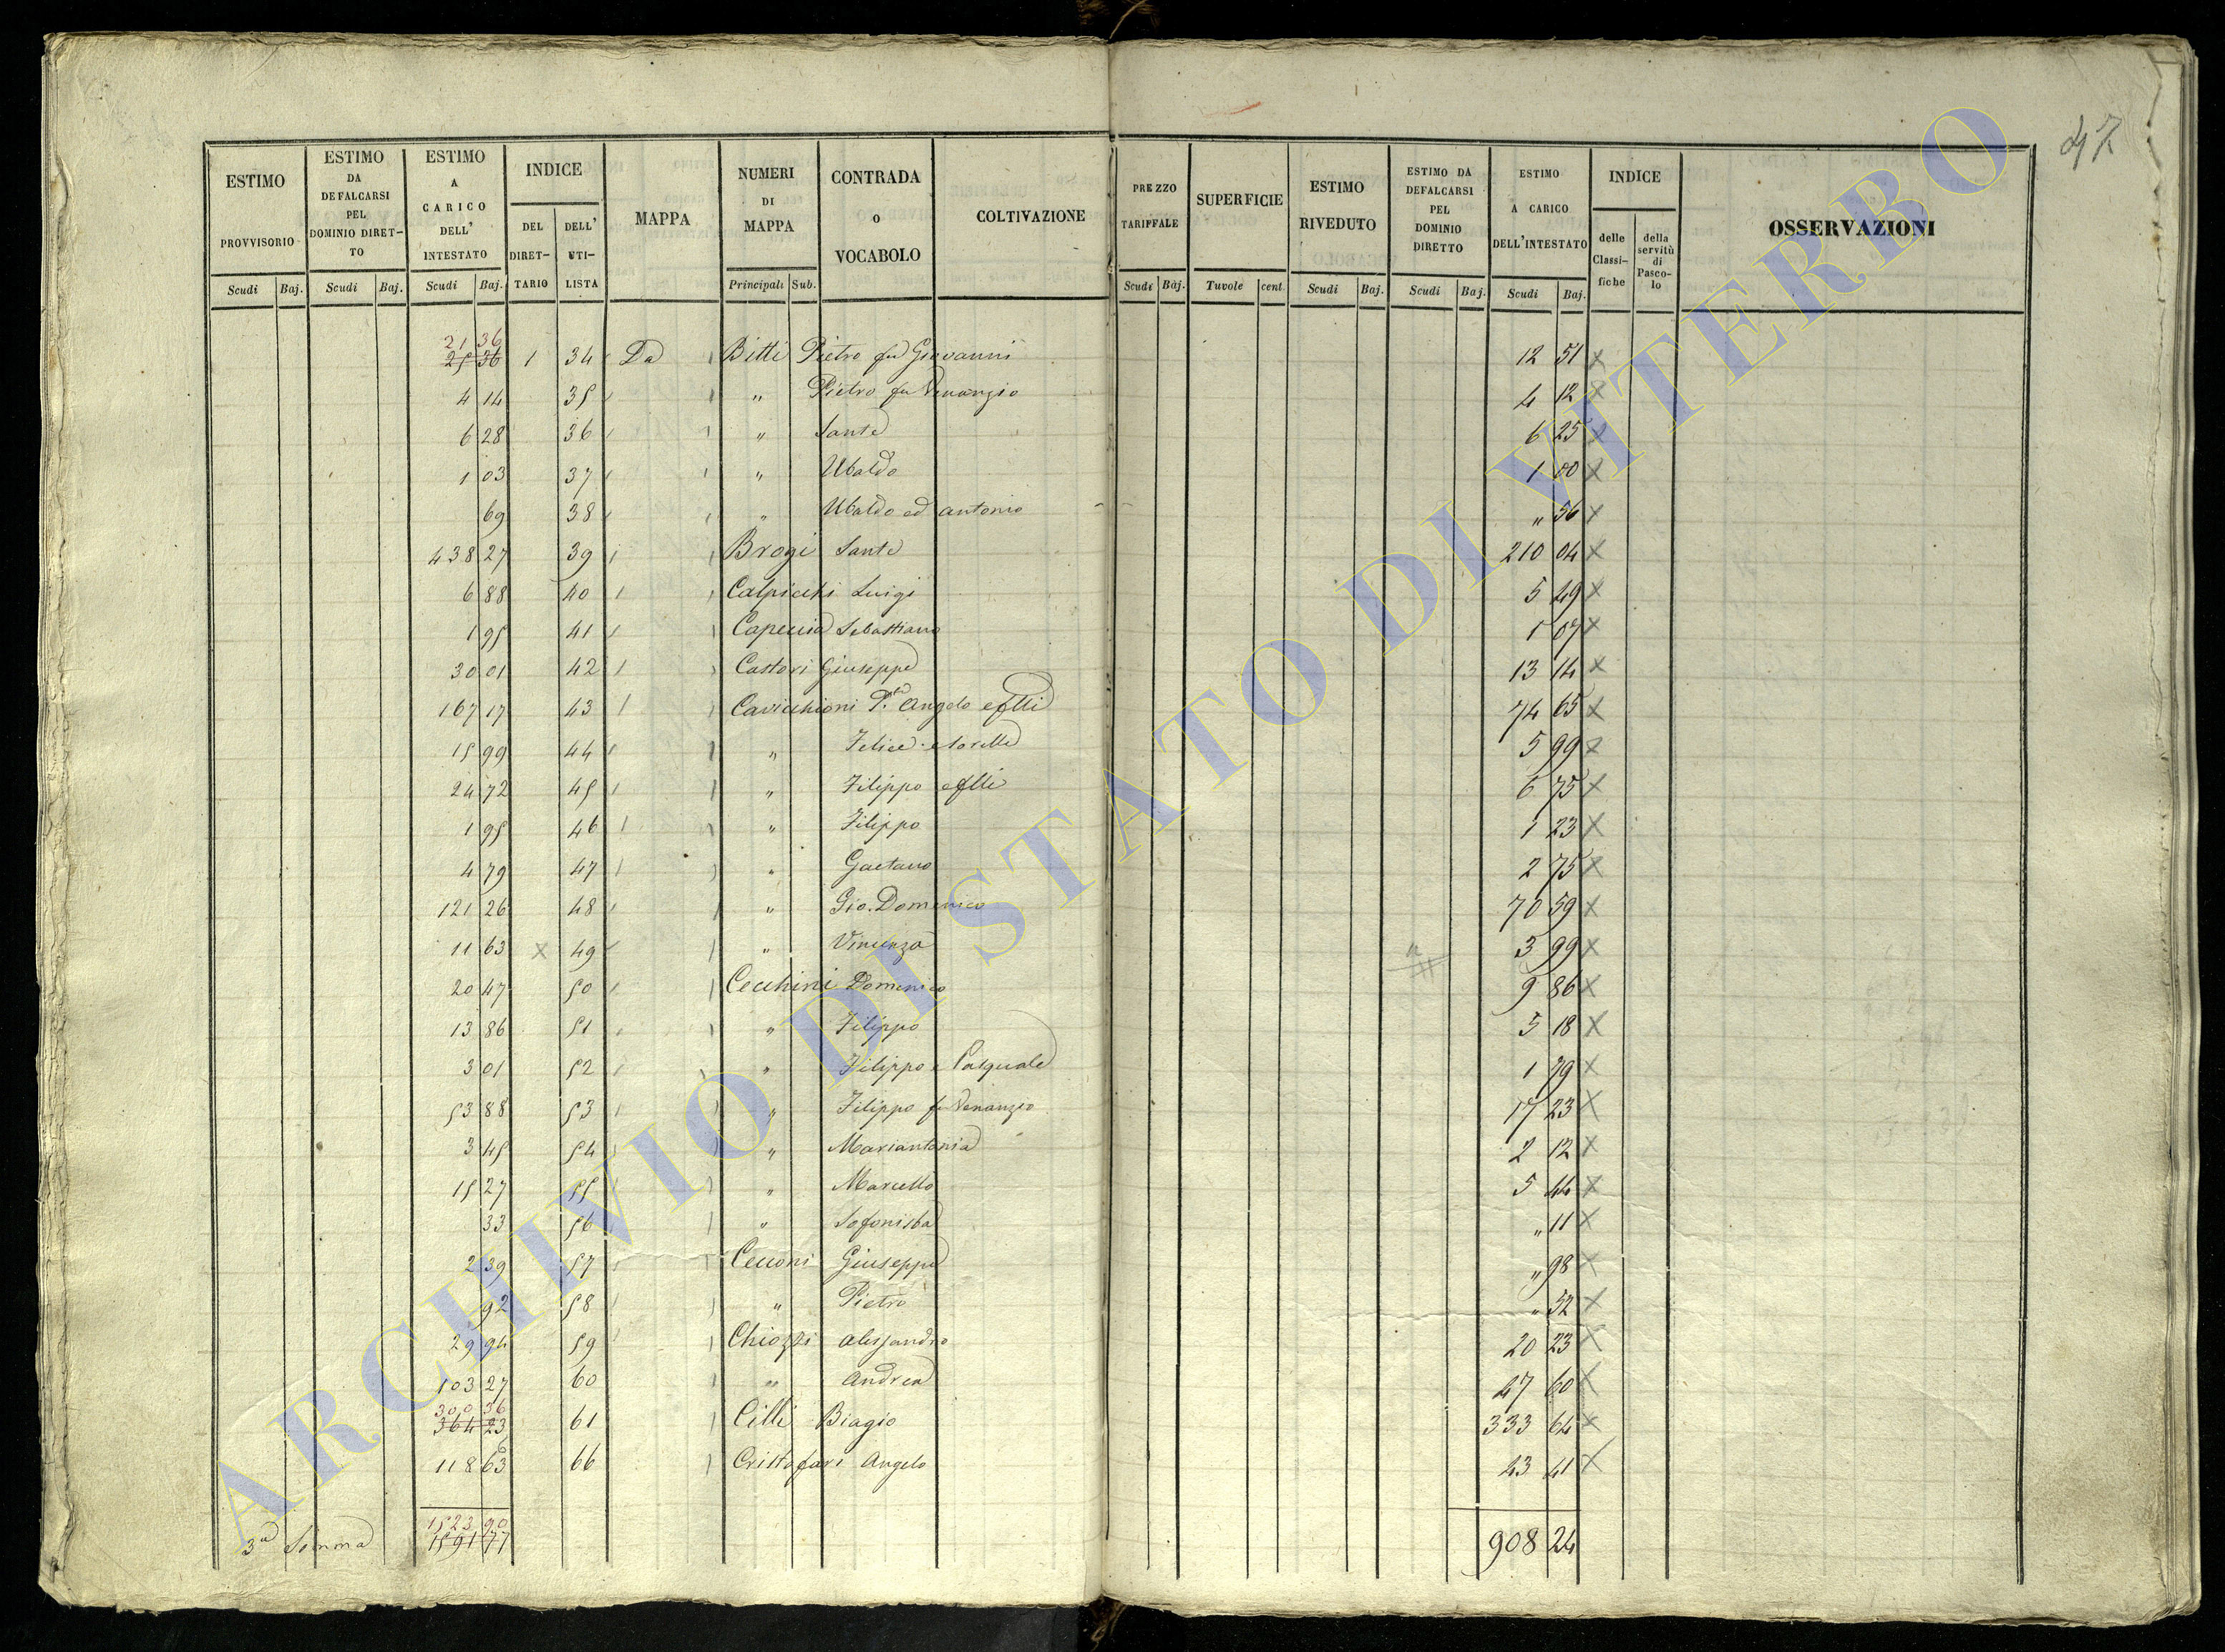 47
ESTIMO PROVVISORIO
ESTIMO DA DEFALCARSI PEL DOMINIO DIRET-TO
ESTIMO A CARICO DELL' INTESTATO
INDICE
DEL DIRET-TARIO
DELL' UTI-LISTA
MAPPA
NUMERI DI MAPPA
CONTRADA o VOCABOLO
COLTIVAZIONE
PREZZO TARIFFALE
SUPERFICIE
ESTIMO RIVEDUTO
ESTIMO DA DEFALCARSI PEL DOMINIO DIRETTO
ESTIMO A CARICO DELL'INTESTATO
INDICE
delle Classi-fiche
della servitù di Pasco-lo
OSSERVAZIONI
Scudi Baj. Scudi Baj. Scudi Baj. Principali Sub. Scudi Baj. Tavole cent. Scudi Baj. Scudi Baj. Scudi Baj.
21 36
25 36 1 34 Da Bitti Pietro fu Giovanni 12 51 x
4 14 35 " Pietro fu Venanzio 4 12 x
6 28 36 " Sante 6 25 x
1 03 37 " Ubaldo 1 00 x
69 38 " Ubaldo ed Antonio " 56 x
438 27 39 Brogi Sante 210 04 x
6 88 40 Calpicchi Luigi 5 49 x
1 95 41 Capeccia Sebastiano 1 07 x
30 01 42 Castori Giuseppe 13 14 x
167 17 43 Cavicchioni P. Angelo e flli 74 65 x
15 99 44 " Felice e sorelle 5 99 x
24 72 45 " Filippo e flli 6 75 x
1 95 46 " Filippo 1 23 x
4 79 47 " Gaetano 2 75 x
121 26 48 " Gio. Domenico 70 59 x
11 63 x 49 " Vincenza 3 99 x
20 47 50 Cecchini Domenico 9 86 x
13 86 51 " Filippo 5 18 x
3 01 52 " Filippo e Pasquale 1 39 x
53 88 53 " Filippo fu Venanzio 17 23 x
3 45 54 " Mariantonia 2 12 x
15 27 55 " Marcello 5 44 x
33 56 " Sofonisba " 11 x
2 39 57 Cecconi Giuseppe " 98 x
92 58 " Pietro " 52 x
29 94 59 Chiozzi Alessandro 20 23 x
103 27 60 " Andrea 47 60 x
300 36
364 23 61 Cilli Biagio 333 64 x
118 63 66 Cristofari Angelo 43 41 x
1523 90
3a Somma 1591 77 908 24
ARCHIVIO DI STATO DI VITERBO